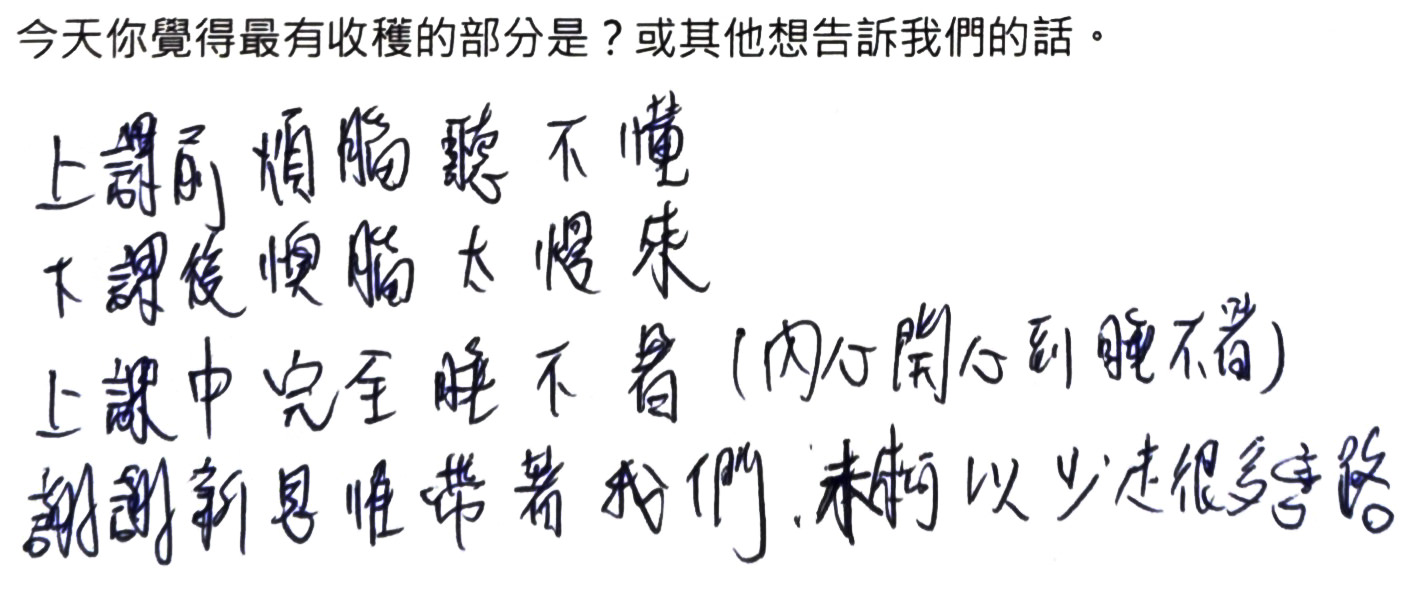 今天你覺得最有收穫的部分是？或其他想告訴我們的話。
上課前煩腦聽不懂
下課後懊腦太慢來
上課中完全睡不著（內心開心到睡不著）
謝謝新思惟帶著我們，未來可以少走很多冤路